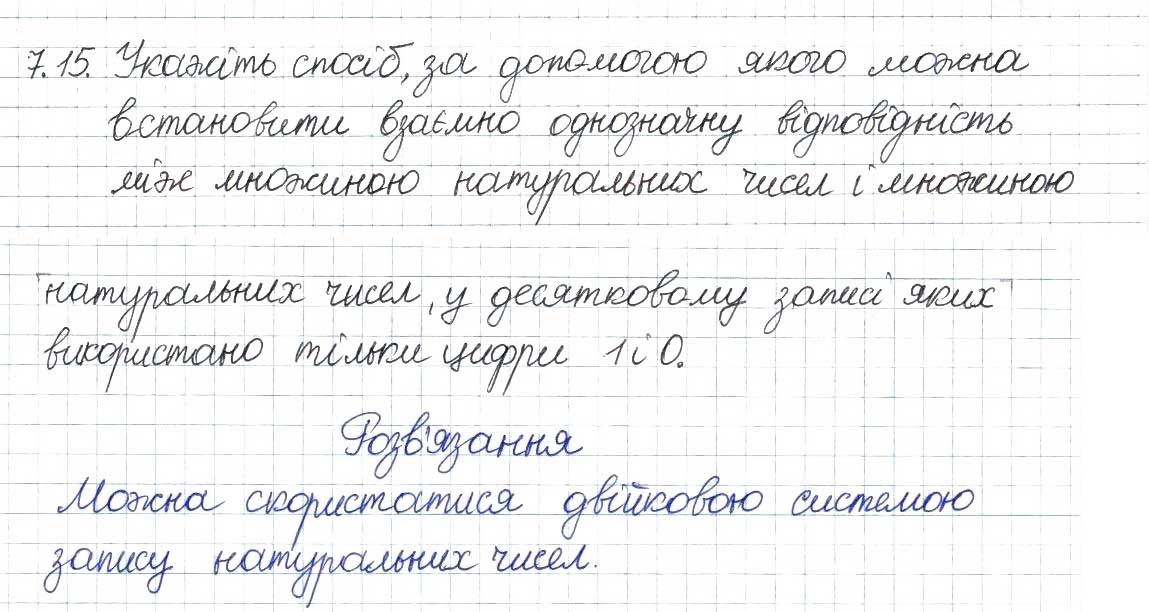 7.15. Укажіть спосіб, за допомогою якого можна
встановити взаємно однозначну відповідність
між множиною натуральних чисел і множиною
натуральних чисел, у десятковому записі яких
використано тільки цифри 1 і 0.
Розв'язання
Можна скористатися двійковою системою
запису натуральних чисел.